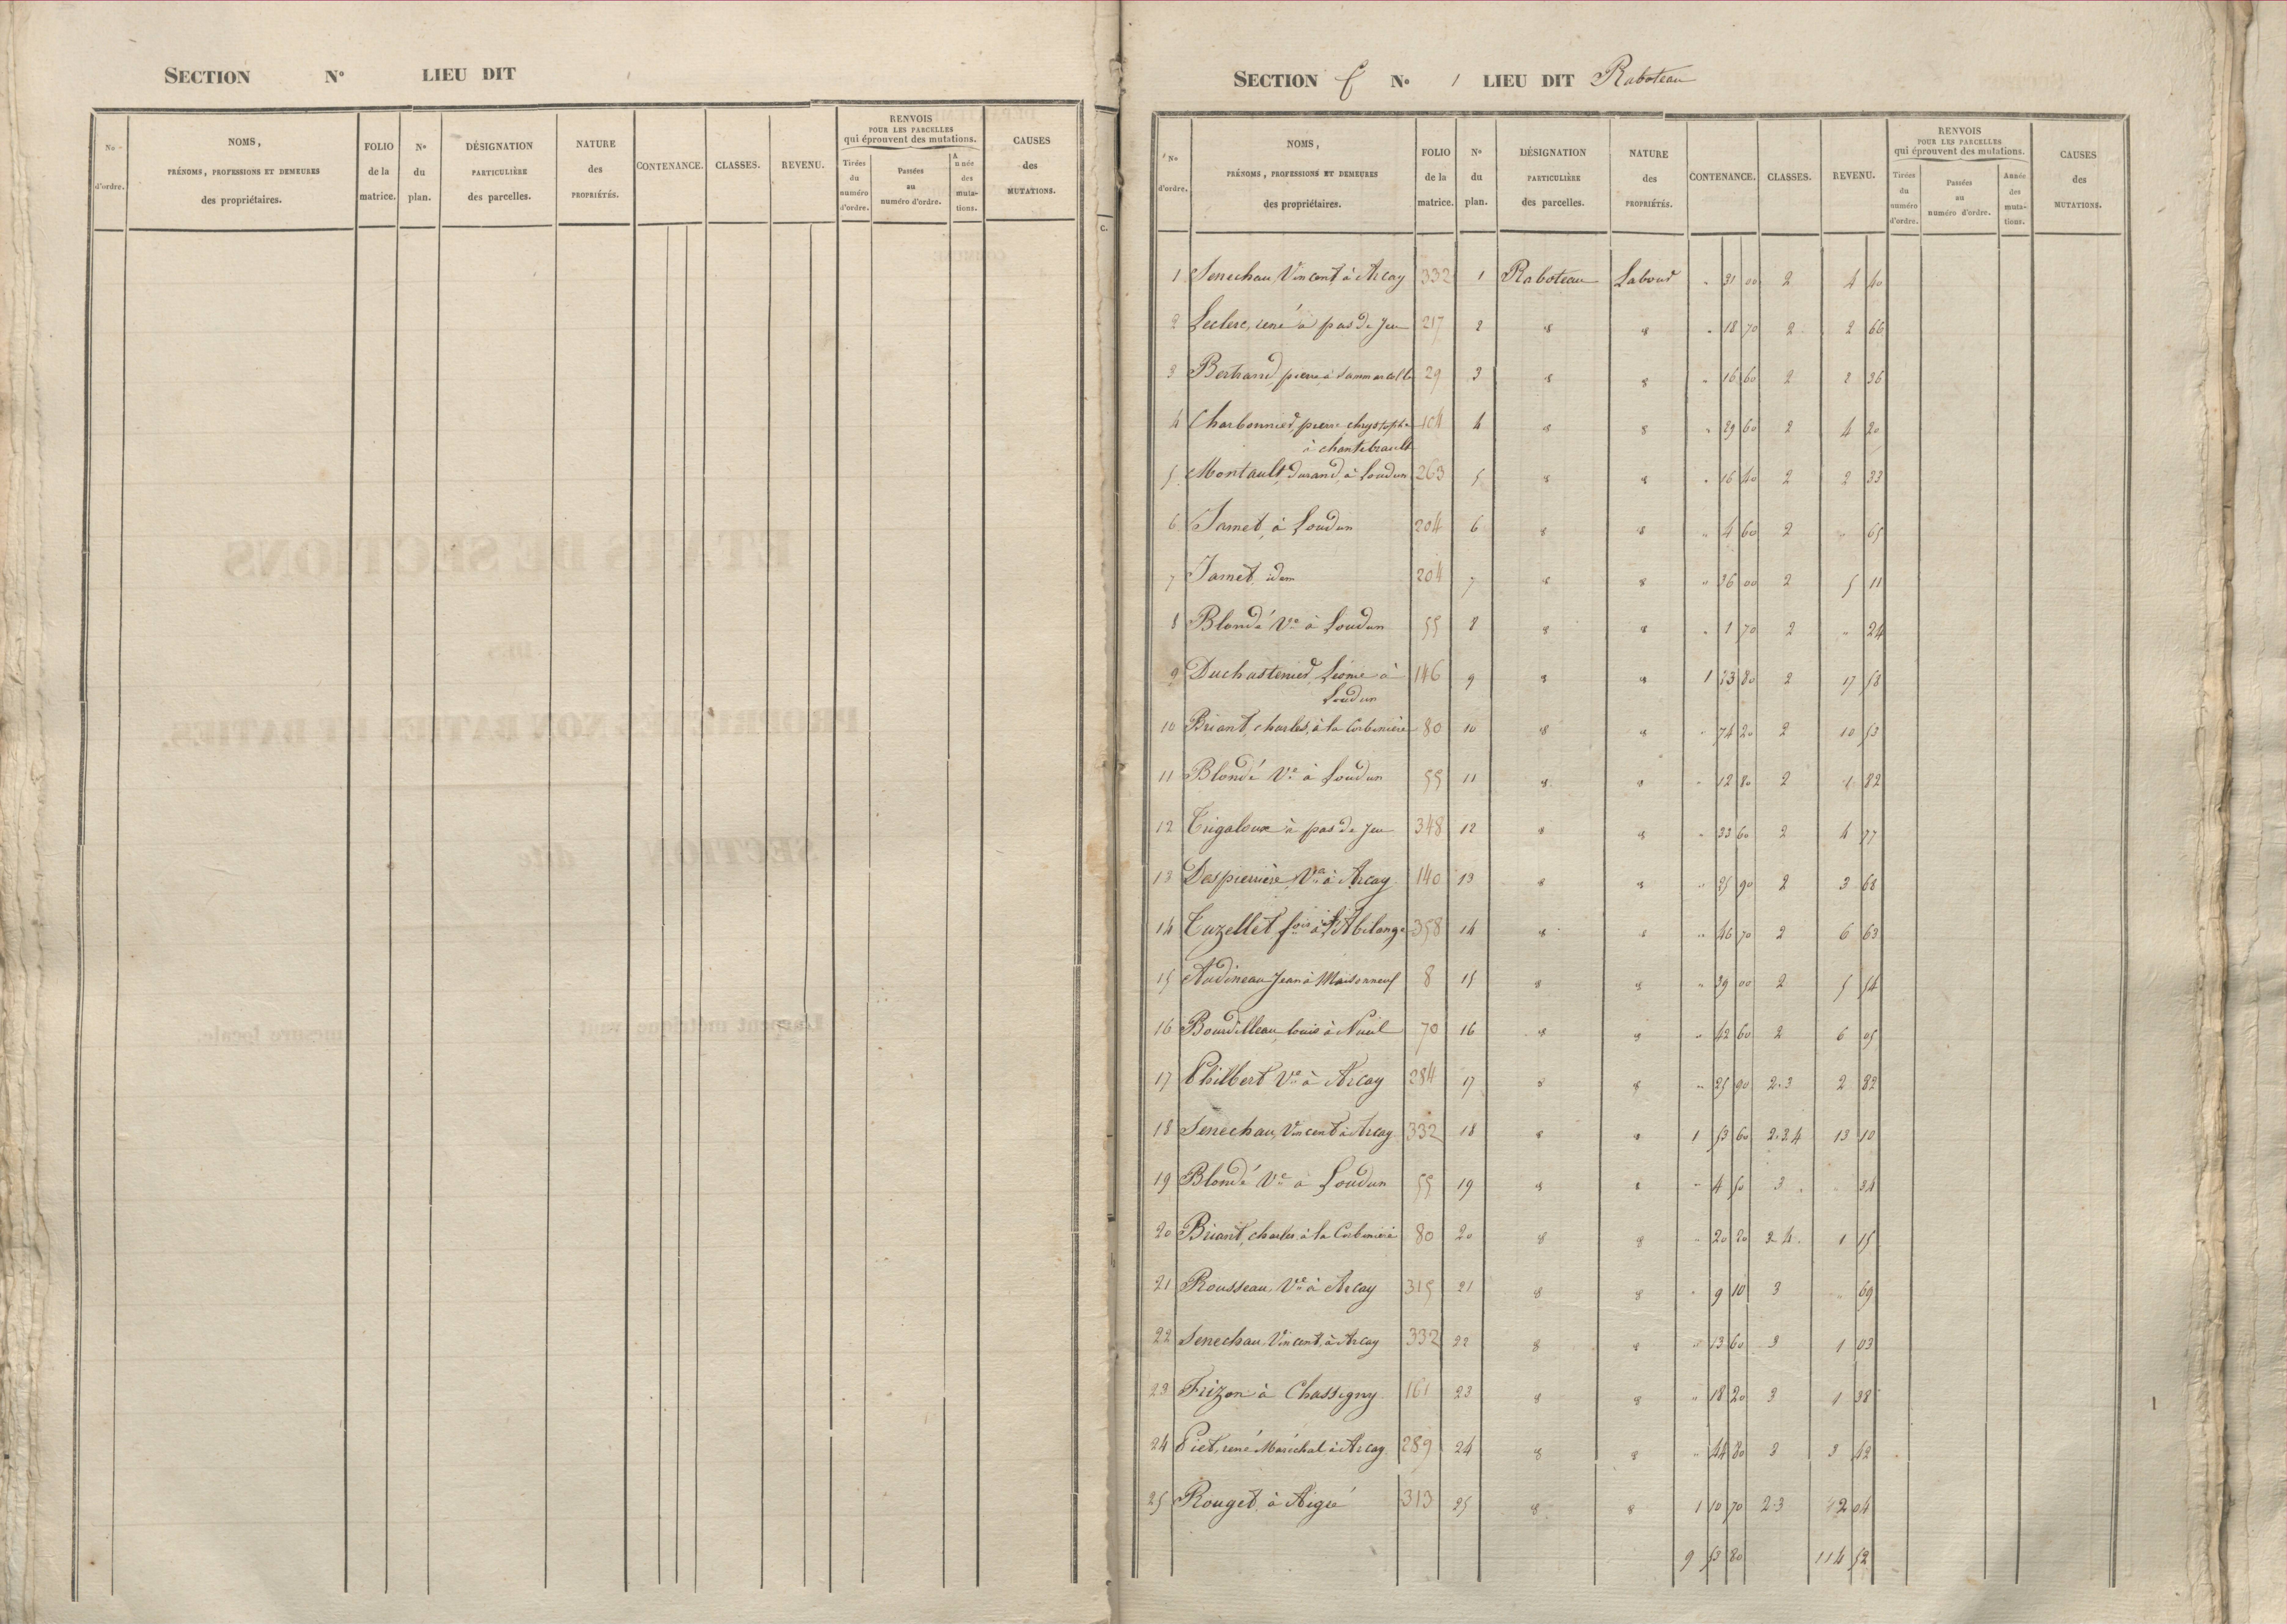 SECTION N° LIEU DIT
No d'ordre. NOMS, PRÉNOMS, PROFESSIONS ET DEMEURES des propriétaires. FOLIO de la matrice. N° du plan. DÉSIGNATION PARTICULIÈRE des parcelles. NATURE des PROPRIÉTÉS. CONTENANCE. CLASSES. REVENU. RENVOIS POUR LES PARCELLES qui éprouvent des mutations. Tirées du numéro d'ordre. Passées au numéro d'ordre. Année des mutations. CAUSES des MUTATIONS.
C.
SECTION f N° 1 LIEU DIT Raboteau
No d'ordre. NOMS, PRÉNOMS, PROFESSIONS ET DEMEURES des propriétaires. FOLIO de la matrice. N° du plan. DÉSIGNATION PARTICULIÈRE des parcelles. NATURE des PROPRIÉTÉS. CONTENANCE. CLASSES. REVENU. RENVOIS POUR LES PARCELLES qui éprouvent des mutations. Tirées du numéro d'ordre. Passées au numéro d'ordre. Année des mutations. CAUSES des MUTATIONS.
1 Senechau, Vincent à Arcay 332 1 Raboteau Labour " 31 00 2 4 40
2 Leclerc, rené à pas de Jeu 217 2 " " " 18 70 2 2 66
3 Bertrand, pierre à Sammarcolle 29 3 " " " 16 60 2 2 36
4 Charbonnier, pierre chrystophe 104 4 " " " 29 60 2 4 20
à chantebrault
5 Montault, durand, à Loudun 263 5 " " " 16 40 2 2 33
6 Jamet, à Loudun 204 6 " " " 4 60 2 " 65
7 Jamet idem 204 7 " " " 36 00 2 5 11
8 Blondé Ve à Loudun 55 8 " " " 1 70 2 " 24
9 Duchastenier, à 146 9 " " 1 23 80 2 17 58
Loudun
10 Briant, charles, à la Corbinière 80 10 " " " 74 20 2 10 53
11 Blondé Ve à Loudun 55 11 " " " 12 80 2 1 82
12 Trigaloux à pas de Jeu 348 12 " " " 33 60 2 4 77
13 Despierrière, Ve à Arcay 140 13 " " " 25 90 2 3 68
14 Tuzellet fois à 358 14 " " " 46 70 2 6 63
15 Audineau Jean à Maisonneuf 8 15 " " " 39 00 2 5 54
16 Bourdilleau, louis à Nueil 70 16 " " " 42 60 2 6 05
17 Philbert Ve à Arcay 284 17 " " " 25 90 2.3 2 82
18 Senechau, Vincent à Arcay 332 18 " " 1 53 60 2.3.4 13 10
19 Blondé Ve à Loudun 55 19 " " " 4 50 3 " 34
20 Briant, charles à la Corbinière 80 20 " " " 20 20 3 4. 1 15
21 Rousseau, Ve à Arcay 315 21 " " " 9 10 3 " 69
22 Senechau, Vincent, à Arcay 332 22 " " " 13 60 3 1 03
23 Frizon à Chassigny 161 23 " " " 18 20 3 1 38
24 Piet, rené Maréchal à Arcay 289 24 " " " 44 80 3 3 42
25 Rouget, à Aigré 313 25 " " 1 10 70 2.3 12 04
9 53 80 114 52
1